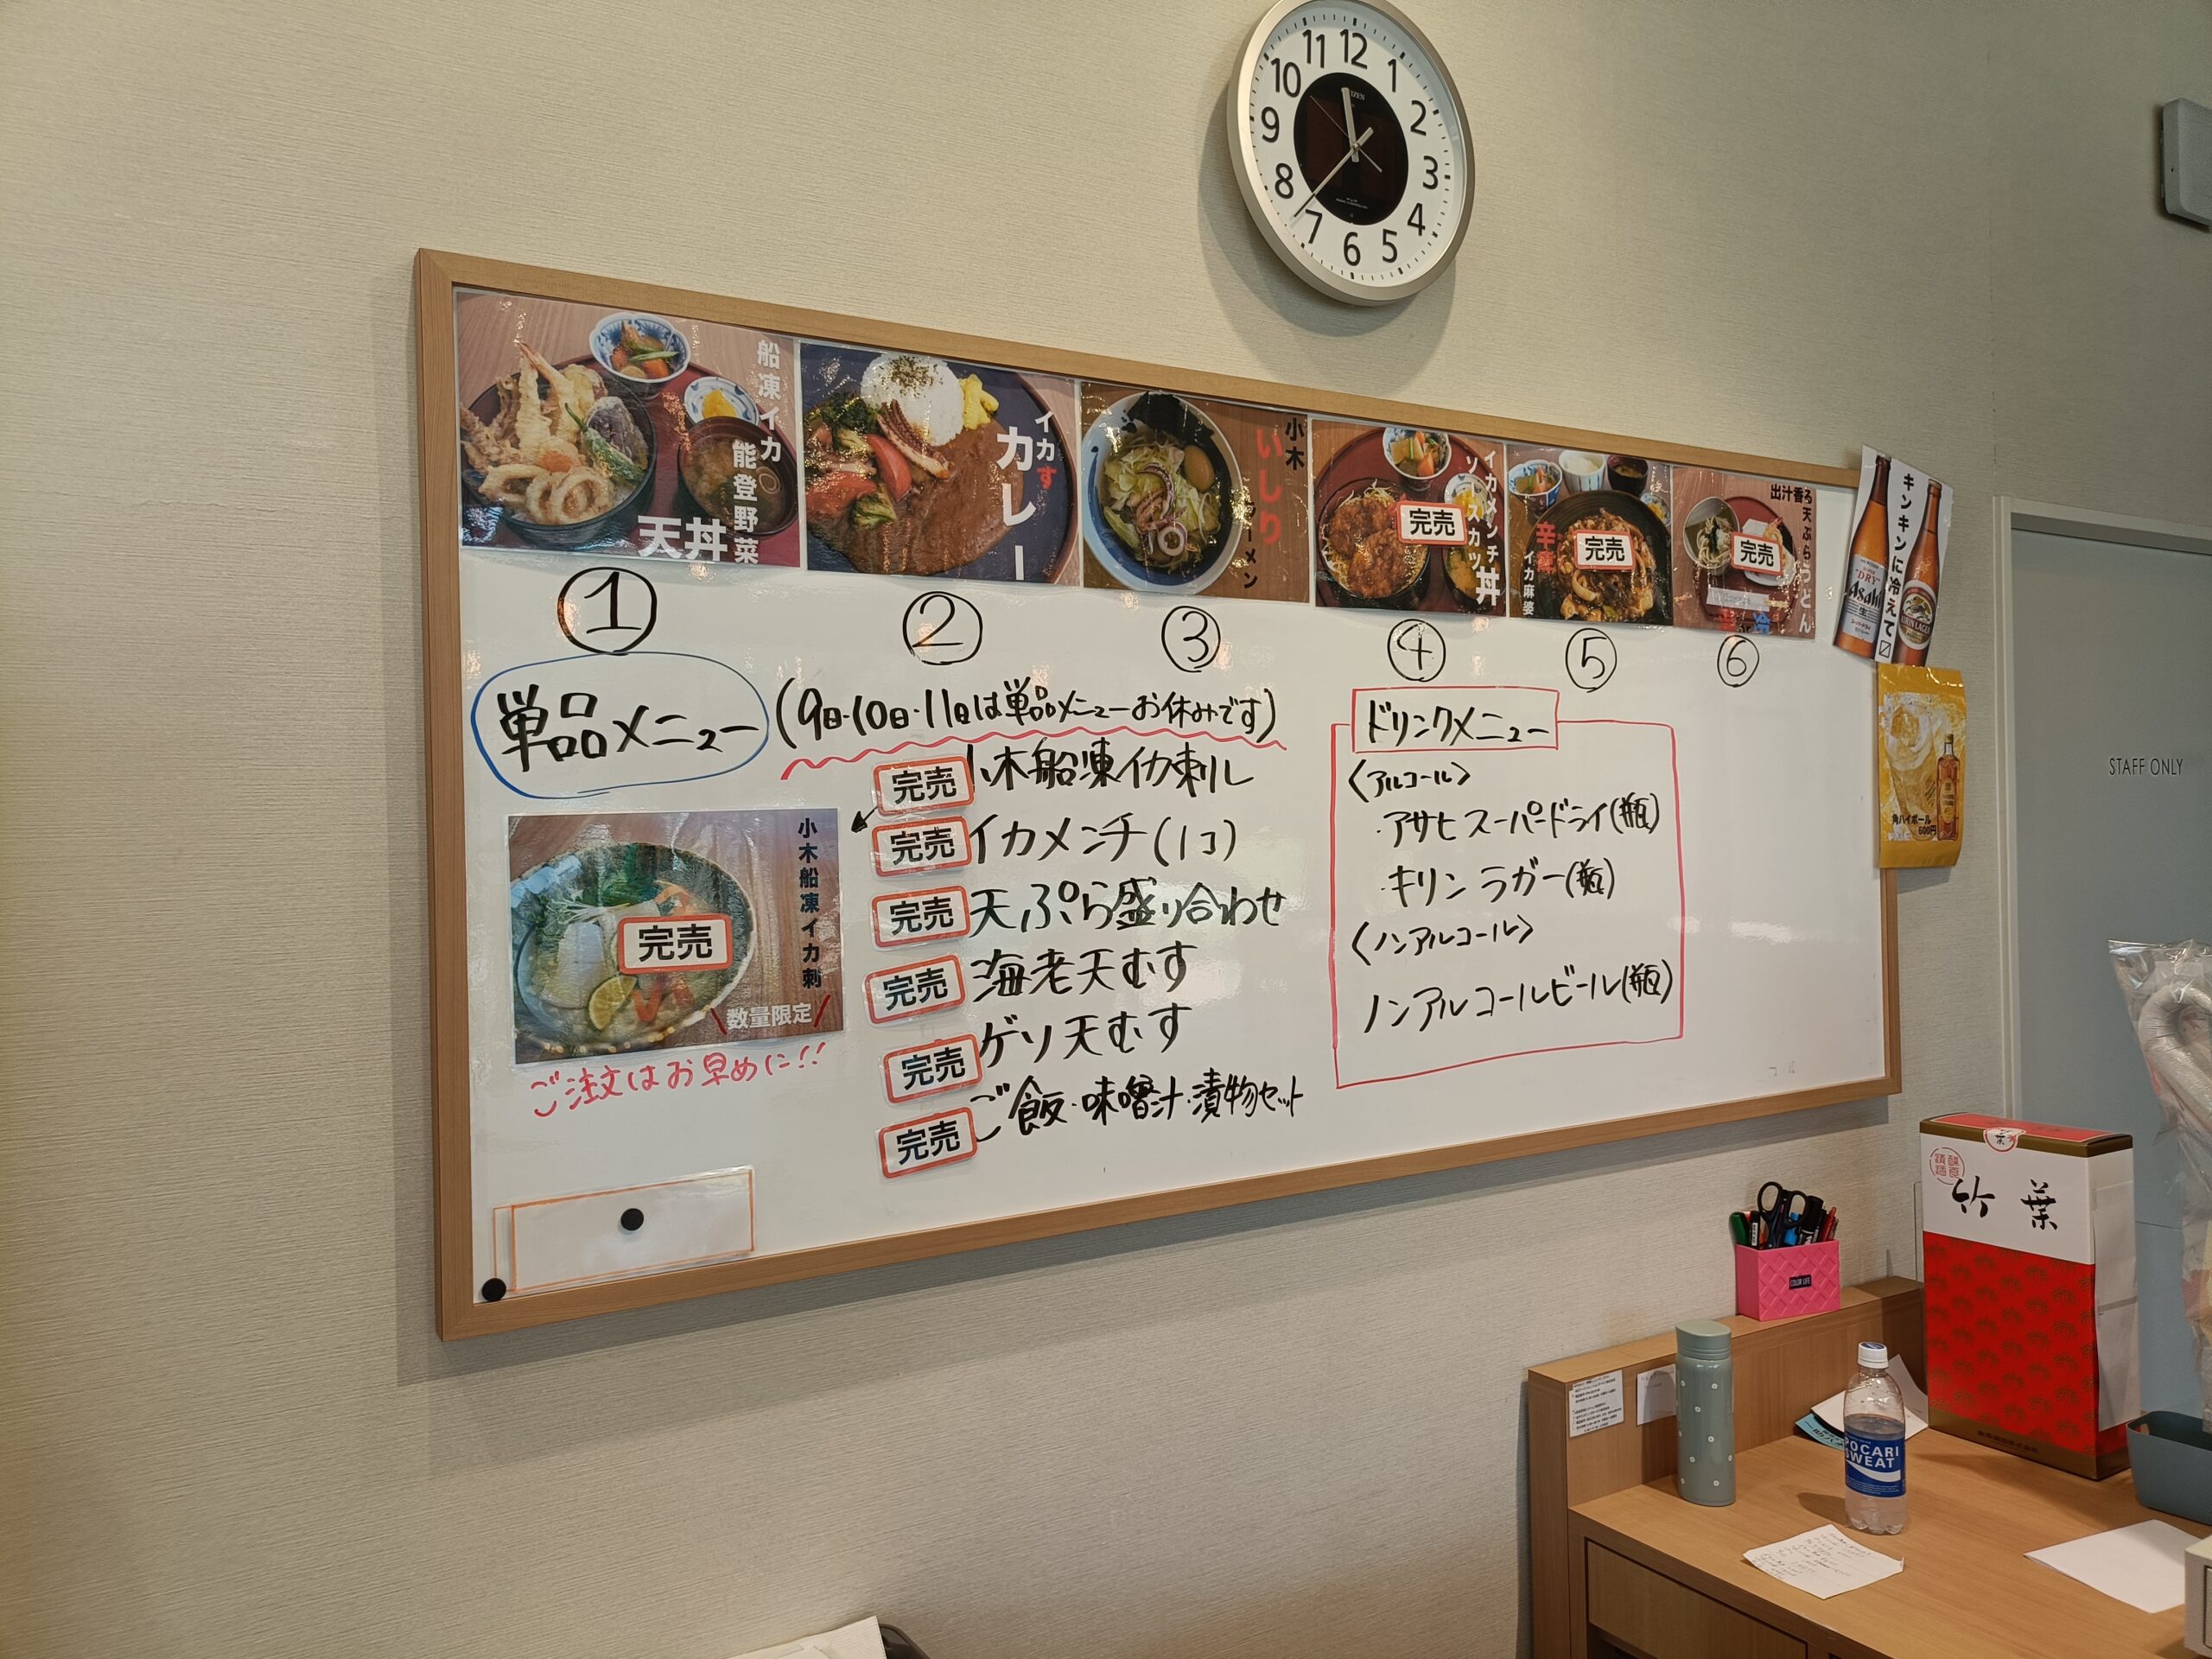 11 12 1
10 2
9 3
8 4
7 6 5
船凍イカ
能登野菜
天丼
イカす
カレー
小木
いしり
ラーメン
イカメンチ
ソースカツ
丼
完売
イカ麻婆
完売
出汁香る天ぷらうどん
完売
冷
キンキンに冷えて〼
Asahi
SUPER "DRY"
KIRIN LAGER
角ハイボール
600円
① ② ③ ④ ⑤ ⑥
単品メニュー
(9日・10日・11日は単品メニューお休みです)
完売 小木船凍イカ刺し
完売 イカメンチ(1コ)
完売 天ぷら盛り合わせ
完売 海老天むす
完売 ゲソ天むす
完売 ご飯・味噌汁・漬物セット
小木船凍イカ刺
完売
数量限定
ご注文はお早めに!!
ドリンクメニュー
〈アルコール〉
・アサヒ スーパードライ(瓶)
・キリン ラガー(瓶)
〈ノンアルコール〉
ノンアルコールビール(瓶)
STAFF ONLY
竹葉
COLOR LIFE
POCARI
SWEAT